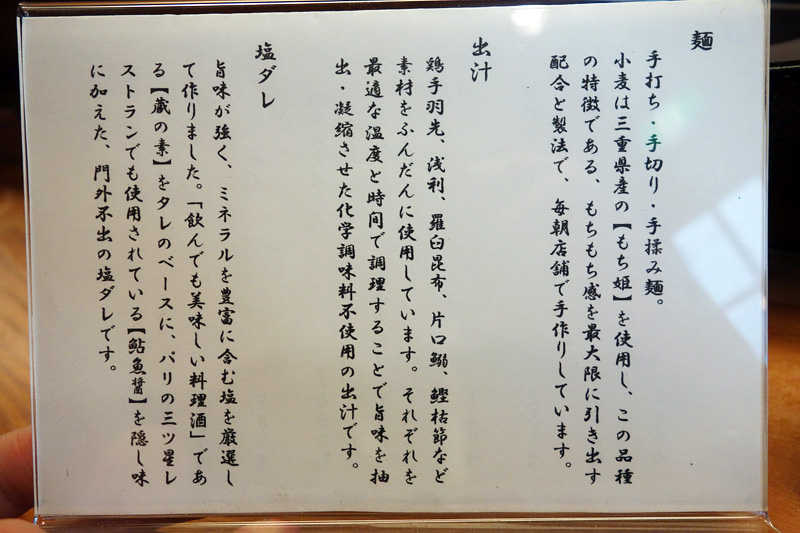 麺
手打ち・手切り・手揉み麺。
小麦は三重県産の【もち姫】を使用し、この品種
の特徴である、もちもち感を最大限に引き出す
配合と製法で、毎朝店舗で手作りしています。
出汁
鶏手羽先、浅利、羅臼昆布、片口鰯、鰹枯節など
素材をふんだんに使用しています。それぞれを
最適な温度と時間で調理することで旨味を抽
出・凝縮させた化学調味料不使用の出汁です。
塩ダレ
旨味が強く、ミネラルを豊富に含む塩を厳選し
て作りました。「飲んでも美味しい料理酒」であ
る【蔵の素】をタレのベースに、パリの三ツ星レ
ストランでも使用されている【鮎魚醤】を隠し味
に加えた、門外不出の塩ダレです。